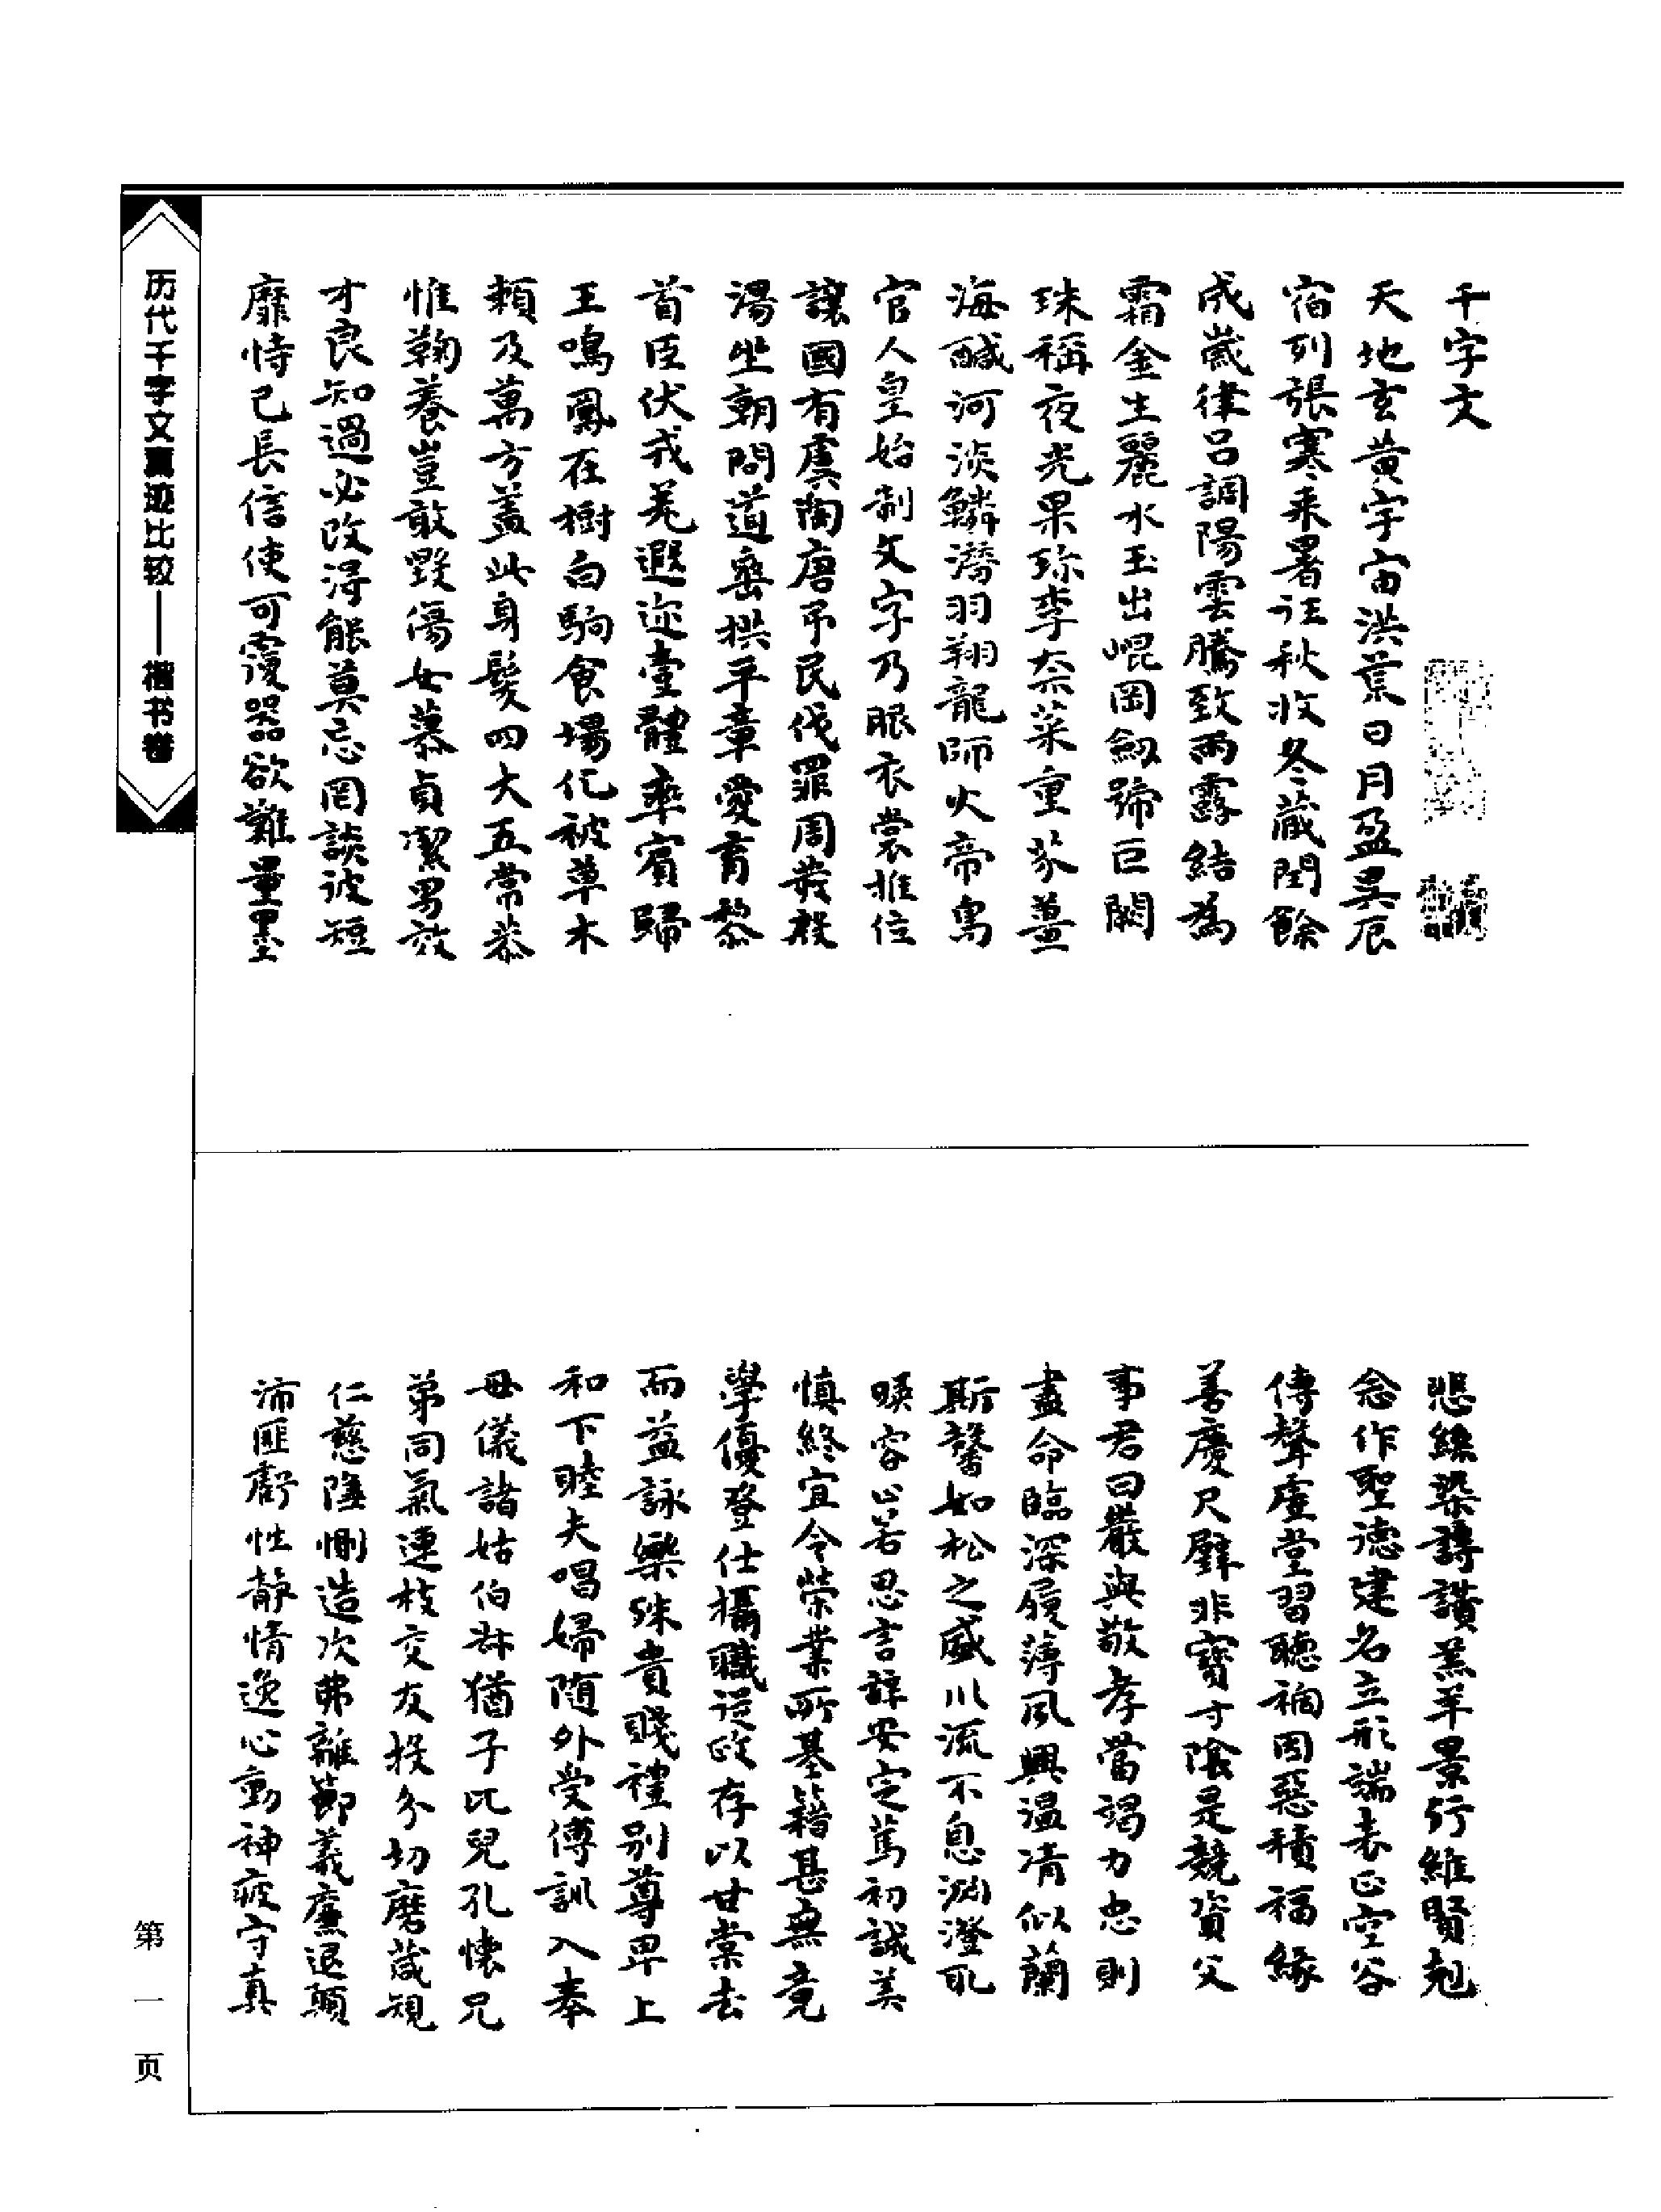 历代千字文真迹比较——楷书卷
千字文
天地玄黄宇宙洪荒日月盈昃辰
宿列張寒来暑往秋收冬蔵閏餘
成歲律吕調陽雲騰致雨露結為
霜金生麗水玉出崐岡劔號巨闕
珠稱夜光果珍李柰菜重芥薑
海醎河淡鱗潛羽翔龍師火帝鳥
官人皇始制文字乃服衣裳推位
讓國有虞陶唐吊民伐罪周發殷
湯坐朝問道垂拱平章愛育黎
首臣伏戎羌遐迩壹體率賓歸
王鳴鳳在樹白駒食場化被草木
頼及萬方盖此身髮四大五常恭
惟鞠養豈敢毀傷女慕貞潔男效
才良知過必改得能莫忘罔談彼短
靡恃己長信使可覆器欲難量墨
悲絲染詩讃羔羊景行維賢剋
念作聖德建名立形端表正空谷
傳聲虚堂習聽禍因惡積福緣
善慶尺璧非寶寸陰是競資父
事君曰嚴與敬孝當竭力忠則
盡命臨深履薄夙興温凊似蘭
斯馨如松之盛川流不息淵澄取
暎容止若思言辞安定篤初誠美
慎終宜令榮業所基籍甚無竟
學優登仕攝職從政存以甘棠去
而益詠樂殊貴賤禮别尊卑上
和下睦夫唱婦随外受傅訓入奉
母儀諸姑伯叔猶子比兒孔懷兄
弟同氣連枝交友投分切磨箴規
仁慈隱惻造次弗離節義廉退顛
沛匪虧性静情逸心動神疲守真
第一页